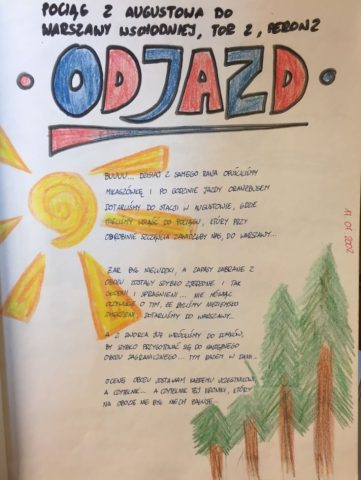 POCIĄG Z AUGUSTOWA DO
WARSZAWY WSCHODNIEJ, TOR 2, PERON 2
ODJAZD
BUUUU... DZISIAJ Z SAMEGO RANA OPUŚCILIŚMY
MIŁASZÓWKĘ I PO GODZINIE JAZDY ORANŻBUSEM
DOTARLIŚMY DO STACJI W AUGUSTOWIE, GDZIE
MIELIŚMY WSIĄŚĆ DO POCIĄGU, KTÓRY PRZY
ODROBINIE SZCZĘŚCIA ZAWIÓZŁBY NAS, DO WARSZAWY...
ŻAR BYŁ NIELUDZKI, A ZAPASY ZABRANE Z
OBOZU ZOSTAŁY SZYBKO ZJEDZONE I TAK
GŁODNI I SPRAGNIENI... NIE MÓWIĄC
OCZYWIŚCIE O TYM, ŻE BYLIŚMY
ZMĘCZENI DOTARLIŚMY DO WARSZAWY...
A Z DWORCA JUŻ WRÓCILIŚMY DO DOMÓW,
BY SZYBKO PRZYGOTOWAĆ SIĘ DO NASTĘPNEGO
OBOZU ZAGRANICZNEGO... TYM RAZEM W
OCENĘ OBOZU ZOSTAWIAM KAŻDEMU UCZESTNIKOWI,
A CZYTELNIK... A CZYTELNIK TEJ KRONIKI, KTÓRY
NA OBOZIE NIE BYŁ NIECH ŻAŁUJE...